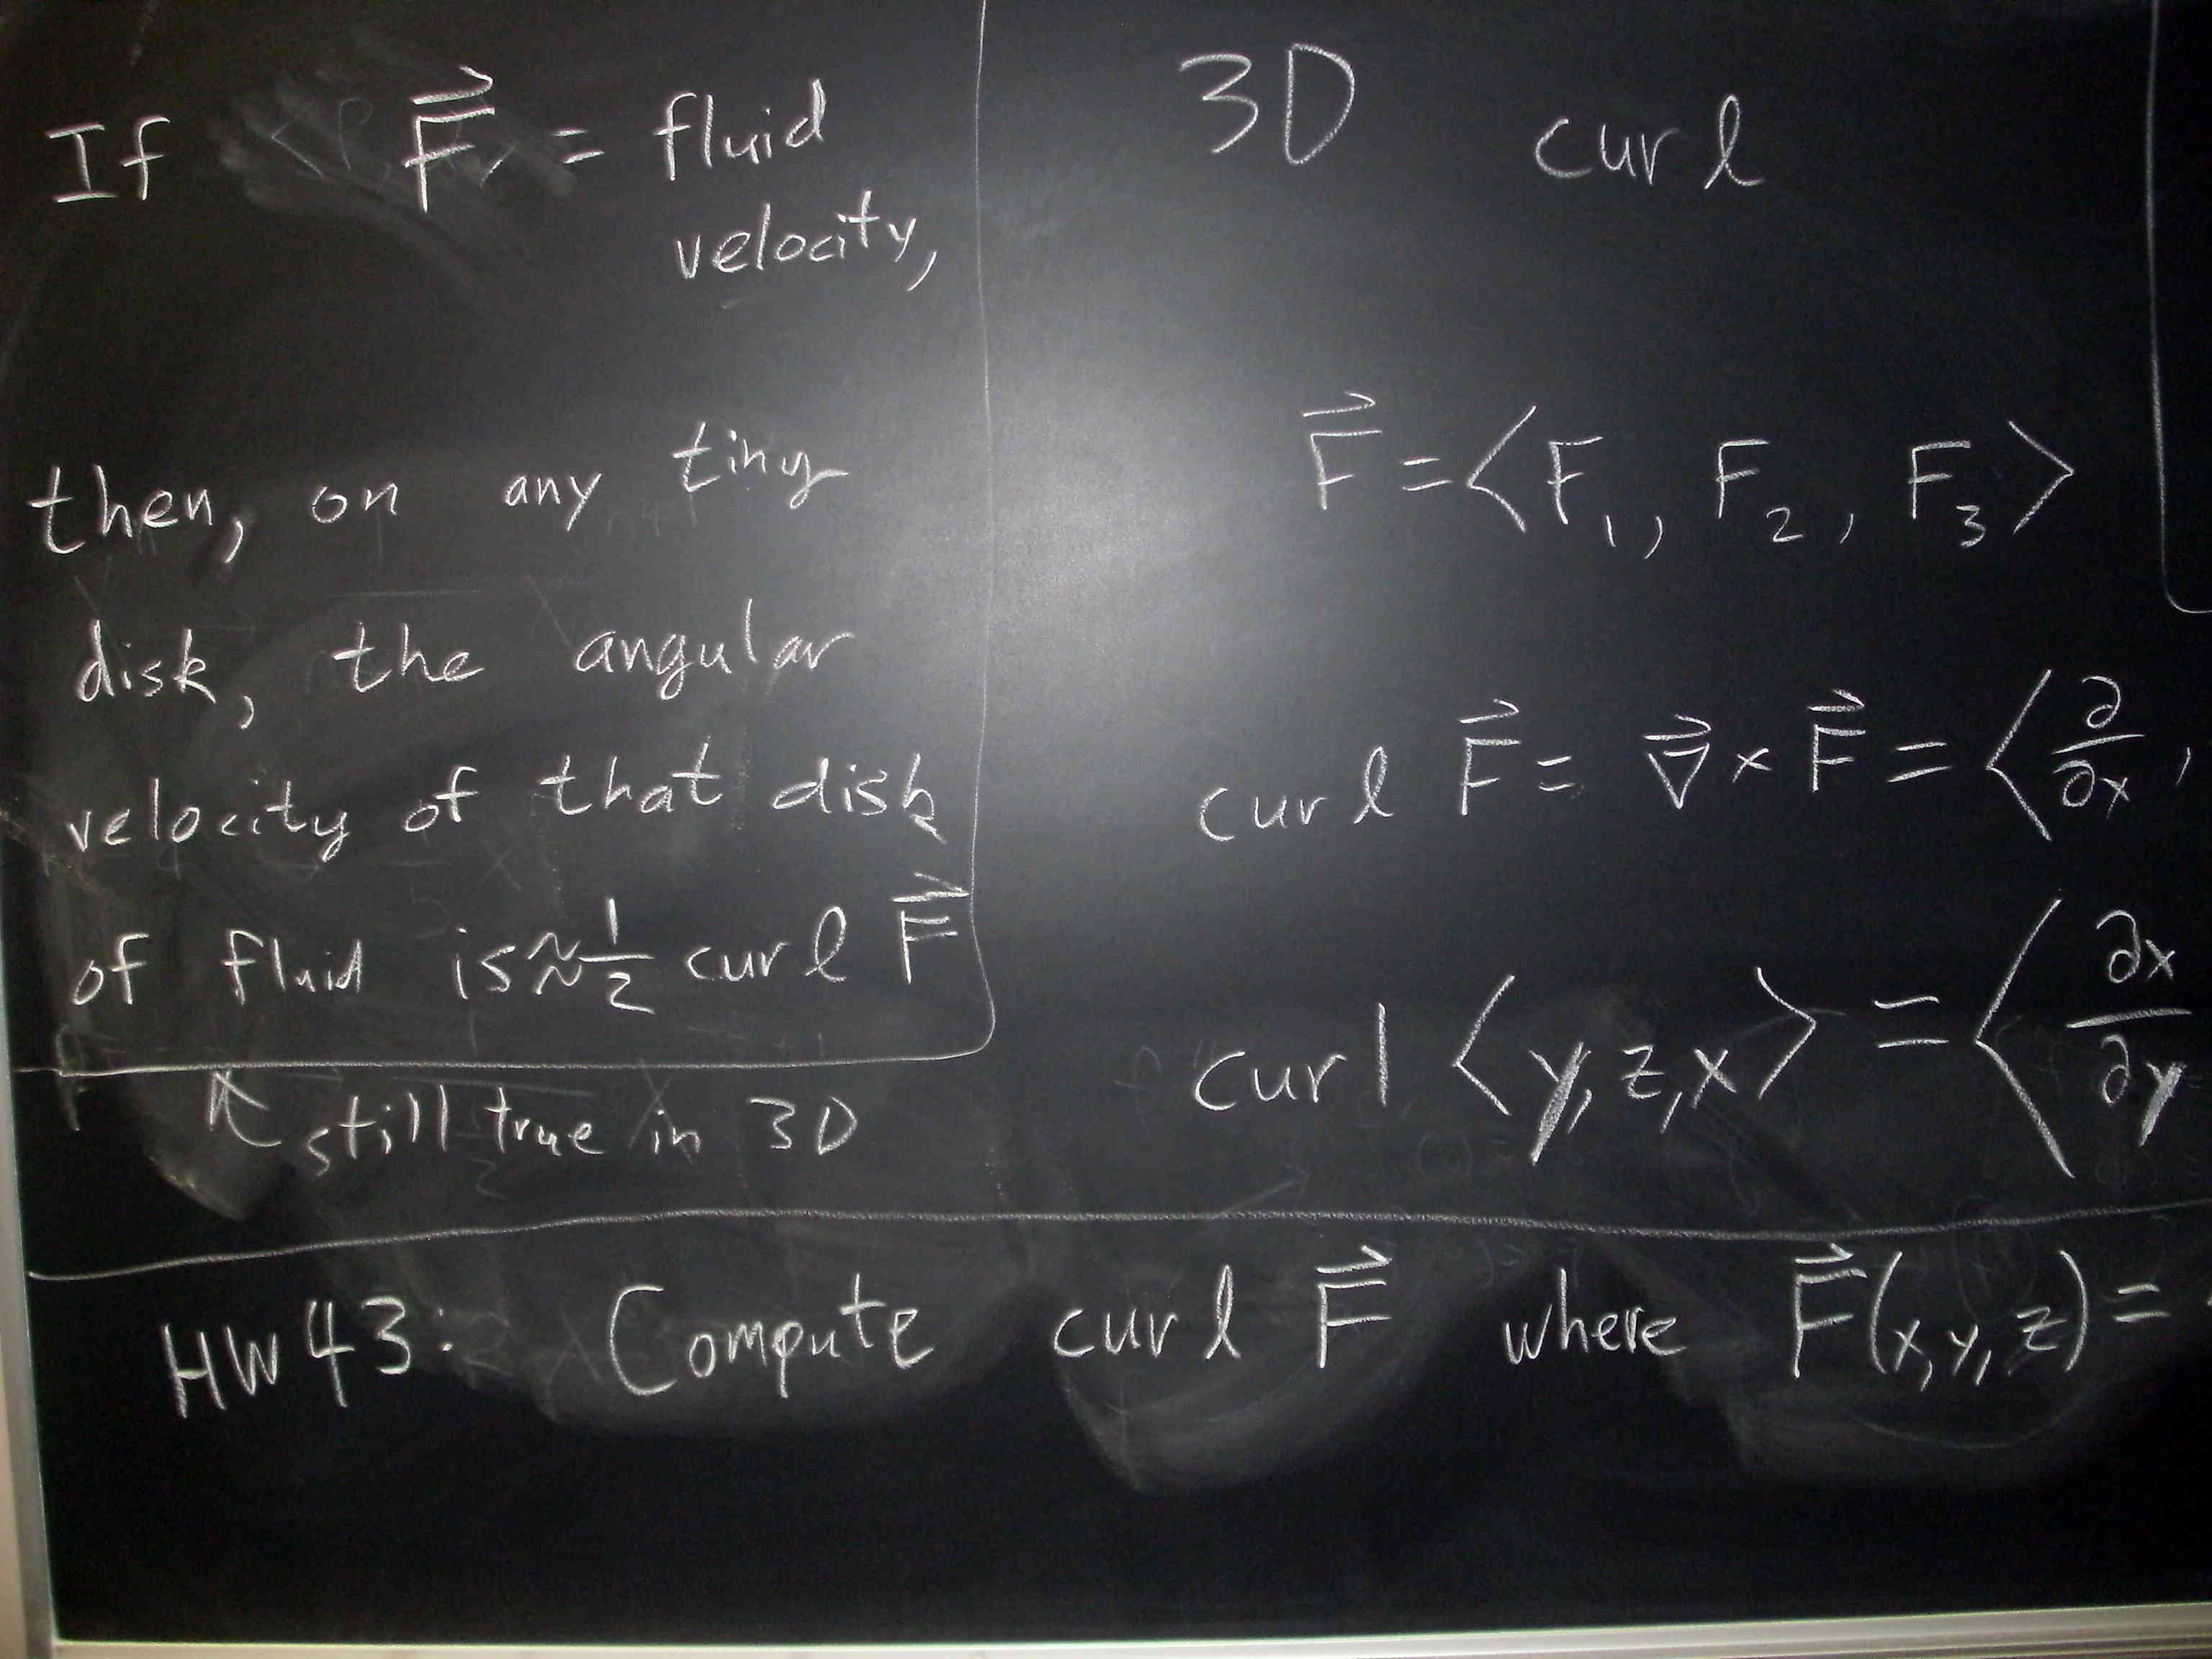 If F⃗ = fluid
velocity,
then, on any tiny
disk, the angular
velocity of that disk
of fluid is ≈ 1/2 curl F⃗
↖ still true in 3D
3D curl
F⃗ = ⟨F₁, F₂, F₃⟩
curl F⃗ = ∇⃗ × F⃗ = ⟨∂/∂x,
curl ⟨y, z, x⟩ = ⟨∂x/∂y
HW43: Compute curl F⃗ where F⃗(x, y, z) =